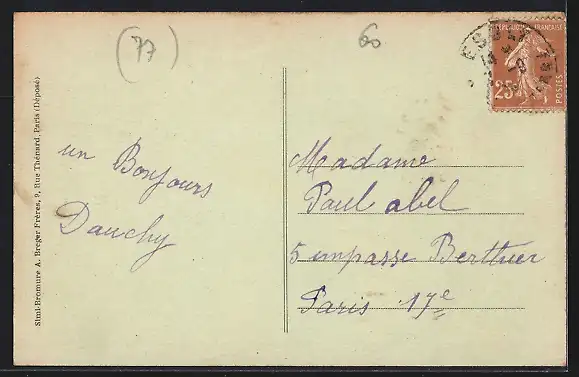 (77)
60
RÉPUBLIQUE FRANÇAISE
25c
POSTES
Simi-Bromure A. Breger Frères, 9, Rue Thénard, Paris (Déposé)
un Bonjours
Dauchy
Madame
Paul abel
5 impasse Berthier
Paris 17e